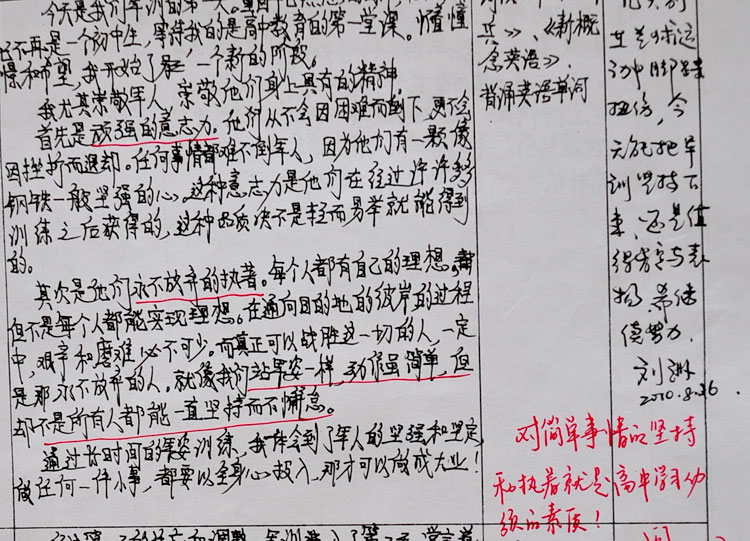 今天是我们军训的第一天。
已不再是一个初中生，等待我的是高中教育的第一堂课。憧憬
和希望，我开始了一个新的阶段。
我尤其崇敬军人，崇敬他们身上具有的精神。
首先是顽强的意志力。他们从不会因困难而倒下，更不会
因挫折而退却。任何事情都难不倒军人，因为他们有一颗像
钢铁一般坚强的心。这种意志力是他们在经过许许多多
训练之后获得的，这种品质决不是轻而易举就能得到
的。
其次是他们永不放弃的执著。每个人都有自己的理想。
但不是每个人都能实现理想。在通向目的地的彼岸的过程
中，艰辛和磨难必不可少。而真正可以战胜这一切的人，一定
是那永不放弃的人。就像我们站军姿一样，动作虽简单，但
却不是所有人都能一直坚持而不懈怠。
通过长时间的军姿训练，我体会到了军人的坚强和坚定，
做任何一件小事，都要以全身心投入，那才可以做成大业！
兵》、《新概
念英语》、
背诵英语单词
扭伤，今
天能把军
训坚持下
来，还是值
扬，希继
续努力.
刘
2010.8.26.
对简单事情的坚持
和执着就是高中学习必
须的素质！